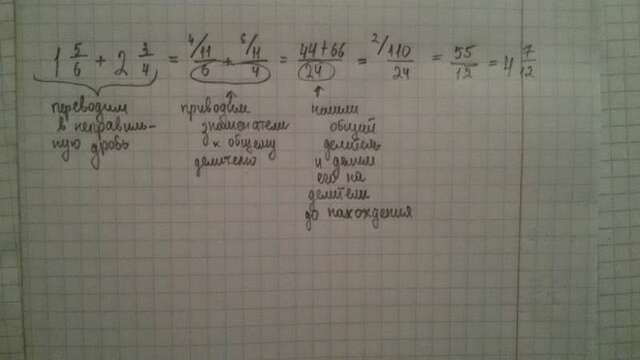 1 5/6 + 2 3/4 = 4/11/6 + 6/11/4 = 44+66/24 = 2/110/24 = 55/12 = 4 7/12
переводим
в неправиль-
ную дробь
приводим
знаменатели
к общему
делителю
нашли
общий
делитель
и делим
его на
делители
до нахождения